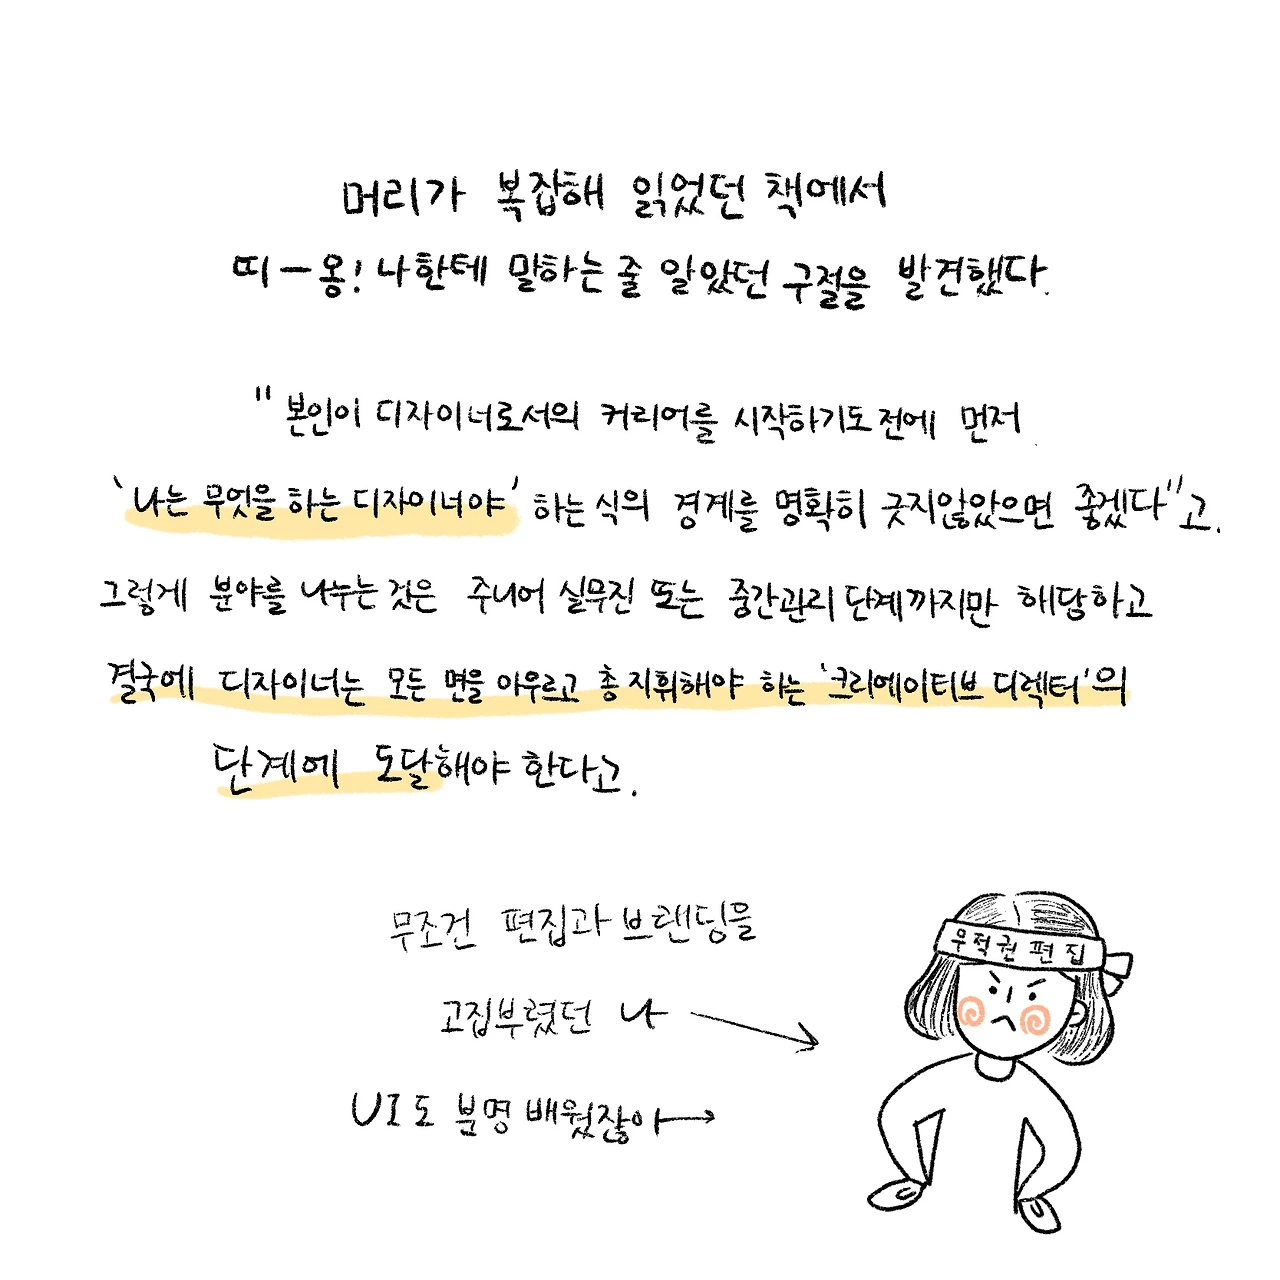 머리가 복잡해 읽었던 책에서
띠-옹! 나한테 말하는 줄 알았던 구절을 발견했다.
"본인이 디자이너로서의 커리어를 시작하기도 전에 먼저
'나는 무엇을 하는 디자이너야' 하는 식의 경계를 명확히 긋지않았으면 좋겠다"고.
그렇게 분야를 나누는 것은 주니어 실무진 또는 중간관리 단계까지만 해당하고
결국에 디자이너는 모든 면을 아우르고 총 지휘해야 하는 '크리에이티브 디렉터'의
단계에 도달해야 한다고.
무조건 편집과 브랜딩을
고집부렸던 나
UI도 분명 배웠잖아
무적권 편집